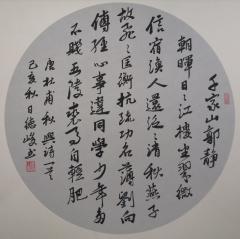 千家山郭靜
朝暉日々江樓坐翠微
信宿漁人還泛々清秋燕子
故飛々匡衡抗疏功名薄劉向
傳經心事違同學少年多
不賤五陵裘馬自輕肥
唐杜甫秋興詩一首
己亥秋日德峻書